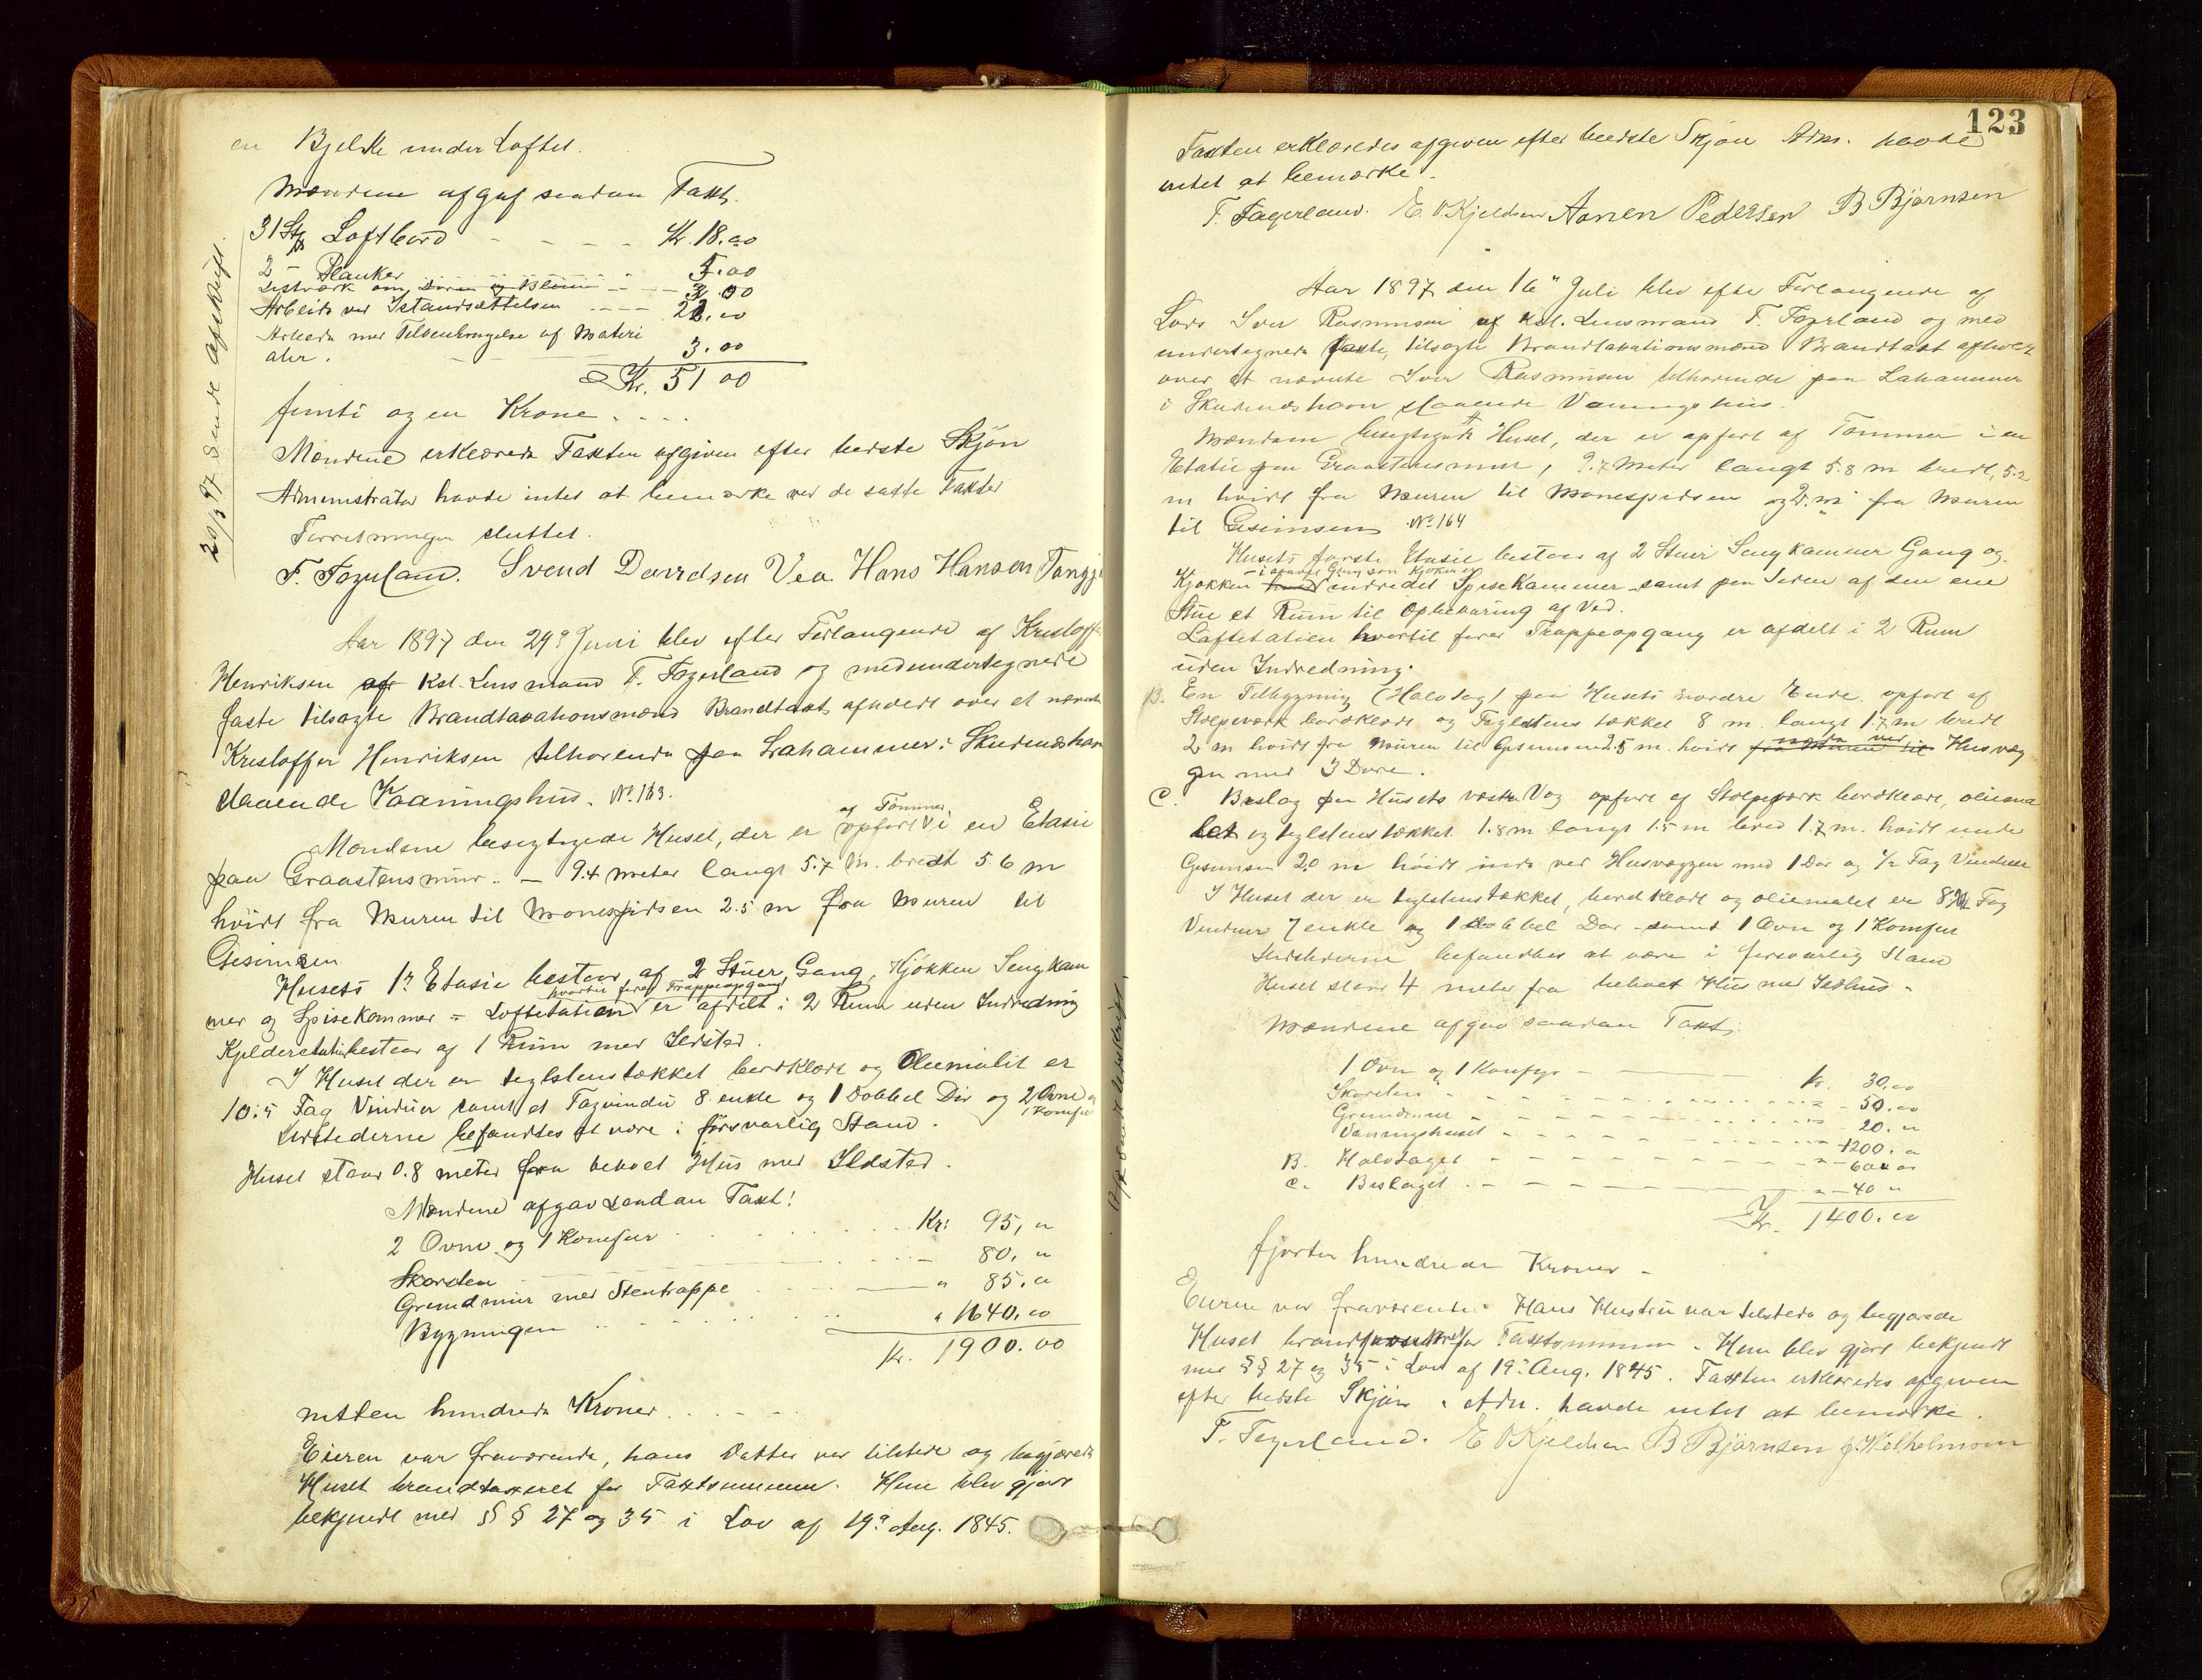 en Bjelke under Loftet.
Mændene afgaf saadan Taxt.
31 Stk Loftbord - - - - Kr. 18.00
2 - Planker 5.00
Listværk om Døren og Blinie - - - 3.00
Arbeide ved Istandsættelsen - - - - 22.00
Arbeide med Tilveiebringelse af Materi
aler. - - - 3.00
Kr. 51 00
femti og en Krone. . . .
Mændene erklærede Taxten afgiven efter bedste Skjøn
Administrator havde intet at bemærke ved de satte Taxter
Forretningen sluttet.
T. Fagerland. Svend Davidsen Vea Hans Hansen Tangj
20/9 97 sendt afskrift.
Aar 1897 den 29de Juni blev efter Forlangende af Kristoffer
Henriksen af Kst. Lensmand T. Fagerland og medundertegnede
faste tilsagte Brandtaxationsmænd Brandtaxt afholdt over et nævnte
Kristoffer Henriksen tilhørende paa Lahammer i Skudeneshavn
staaende Vaaningshus. No. 163.
Mændene besigtigede Huset, der er af Tømmer opført i en Etasie
paa Graastensmur. - 9.4 Meter langt 5.7 m. bredt 5.6 m
høidt fra Muren til Mønespidsen 2.5 m fra Muren til
Gesimsen
Husets 1ste Etasie bestaar af 2 Stuer, Gang, Kjøkken Sengkam
mer og Spisekammer - Loftetatien hvortil fører Trappeopgang er afdelt i 2 Rum uden Indredning
Kjelderetatien bestaar af 1 Rum med Ildsted.
I Huset der er teglstenstækket bordklædt og Oliemalet er
10.5 Fag Vinduer samt et Fagvindu 8 enkle og 1 Dobbel Dør og 2 Ovne og
1 Komfur
Ildstederne befandtes at være i forsvarlig Stand.
Huset staar 0.8 meter fra beboet Hus med Ildsted.
Mændene afgav saadan Taxt!
2 Ovne og 1 Komfur . . . . Kr: 95, "
Skorsten - 80. "
Grundmur med Stentrappe " 85. "
Bygningen " 1640.00
Kr. 1900.00
nitten hundrede Kroner. . - - -
Eieren var fraværende, hans Datter var tilstede og begjærede
Huset brandtaxeret for Taxtsummen. Hun blev gjort
bekjendt med § § 27 og 35 i Lov af 19de Aug. 1845.
123
Taxten erklæredes afgiven efter bedste Skjøn Adm. havde
intet at bemærke.
T. Fagerland. E. O. Kjeldsen Aanen Pedersen B Bjørnsen
Aar 1897 den 16" Juli blev efter Forlangende af
Lars Iver Rasmusen af Kst. Lensmand T. Fagerland og med
undertegnede faste, tilsagte Brandtaxationsmænd Brandtaxt afholdt
over et nævnte Iver Rasmusen tilhørende paa Lahammer
i Skudeneshavn staaende Vaaningshus.
Mændene besigtigede Huset, der er opført af Tømmer i en
Etatie paa Graastensmur, 9.7 Meter langt 5.8 m bredt, 5.2
m høidt fra Muren til Mønespidsen og 2. m fra Muren
til Gesimsen No. 164
Husets første Etasie bestaar af 2 Stuer Sengkammer Gang og
Kjøkken - i samme Gang som Kjøkken er indredet SpiseKammer - samt paa Siden af den ene
Stue et Rum til Opbevaring af Ved.
Loftetatien hvortil fører Trappeopgang er afdelt i 2 Rum
uden Indredning.
B. En Tilbygning (Halvtag) paa Husets nordre Ende opført af
Stolpeværk bordklædt og Teglstens tækket 8 m. langt 1.7 m bredt
2 m høidt fra Muren til Gesimsen 2.5 m. høidt fra Muren til nede ved Husvæg
gen med 3 Døre.
C. Bislag paa Husets vestre Væg opført af Stolpeværk bordklædt, oliema
let og teglstenstækket 1.8 m langt 1.5 m bred 1.7 m. høidt under
Gesimsen 2.0 m høidt inde ved Husvæggen med 1 Dør og 1/2 Fag Vinduer
I Huset der er teglstenstækket, bordklædt og oliemalet er 8 1/2 Fag
Vinduer 7 enkle og 1 dobbel Dør - samt 1 Ovn og 1 Komfur
Ildstederne befandtes at være i forsvarlig Stand
Huset staar 4 meter fra beboet Hus med Ildhus -
Mændene afgav saadan Taxt.
1 Ovn og 1 Komfyr - Kr. 30.00
Skorsten - 50.00
Grundmur - 20. "
Vaaningshuset - 1200. "
B. Halvtaget - 60. 00
C. Bislaget - 40 "
Kr. 1400.00
fjorten hundrede Kroner -
Eieren var fraværende. Hans Hustru var tilstede og begjærede
Huset brandforsikret for Taxtsummen. Hun blev gjort bekjendt
med §§ 27 og 35 i Lov af 19de Aug. 1845. Taxten erklæredes afgiven
efter bedste Skjøn. Adm. havde intet at bemærke.
T. Fagerland. E O Kjeldsen B Bjørnsen J. Wilhelmsen